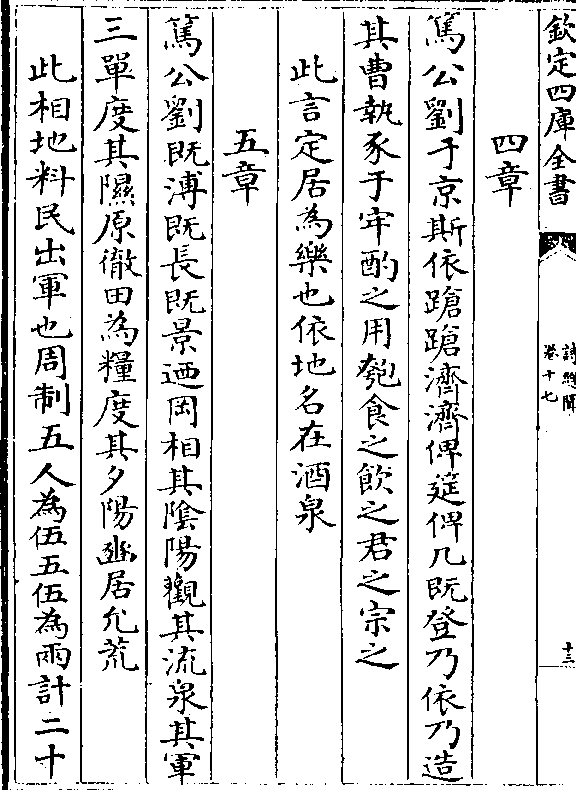 欽定四庫全書
詩總聞
卷十七
十三
四章
篤公劉于京斯依蹌蹌濟濟俾筵俾几既登乃依乃造
其曹執豕于牢酌之用匏食之飲之君之宗之
此言定居為樂也依地名在酒泉
五章
篤公劉既溥既長既景迺岡相其陰陽觀其流泉其軍
三單度其隰原徹田為糧度其夕陽豳居允荒
此相地料民出軍也周制五人為伍五伍為兩計二十